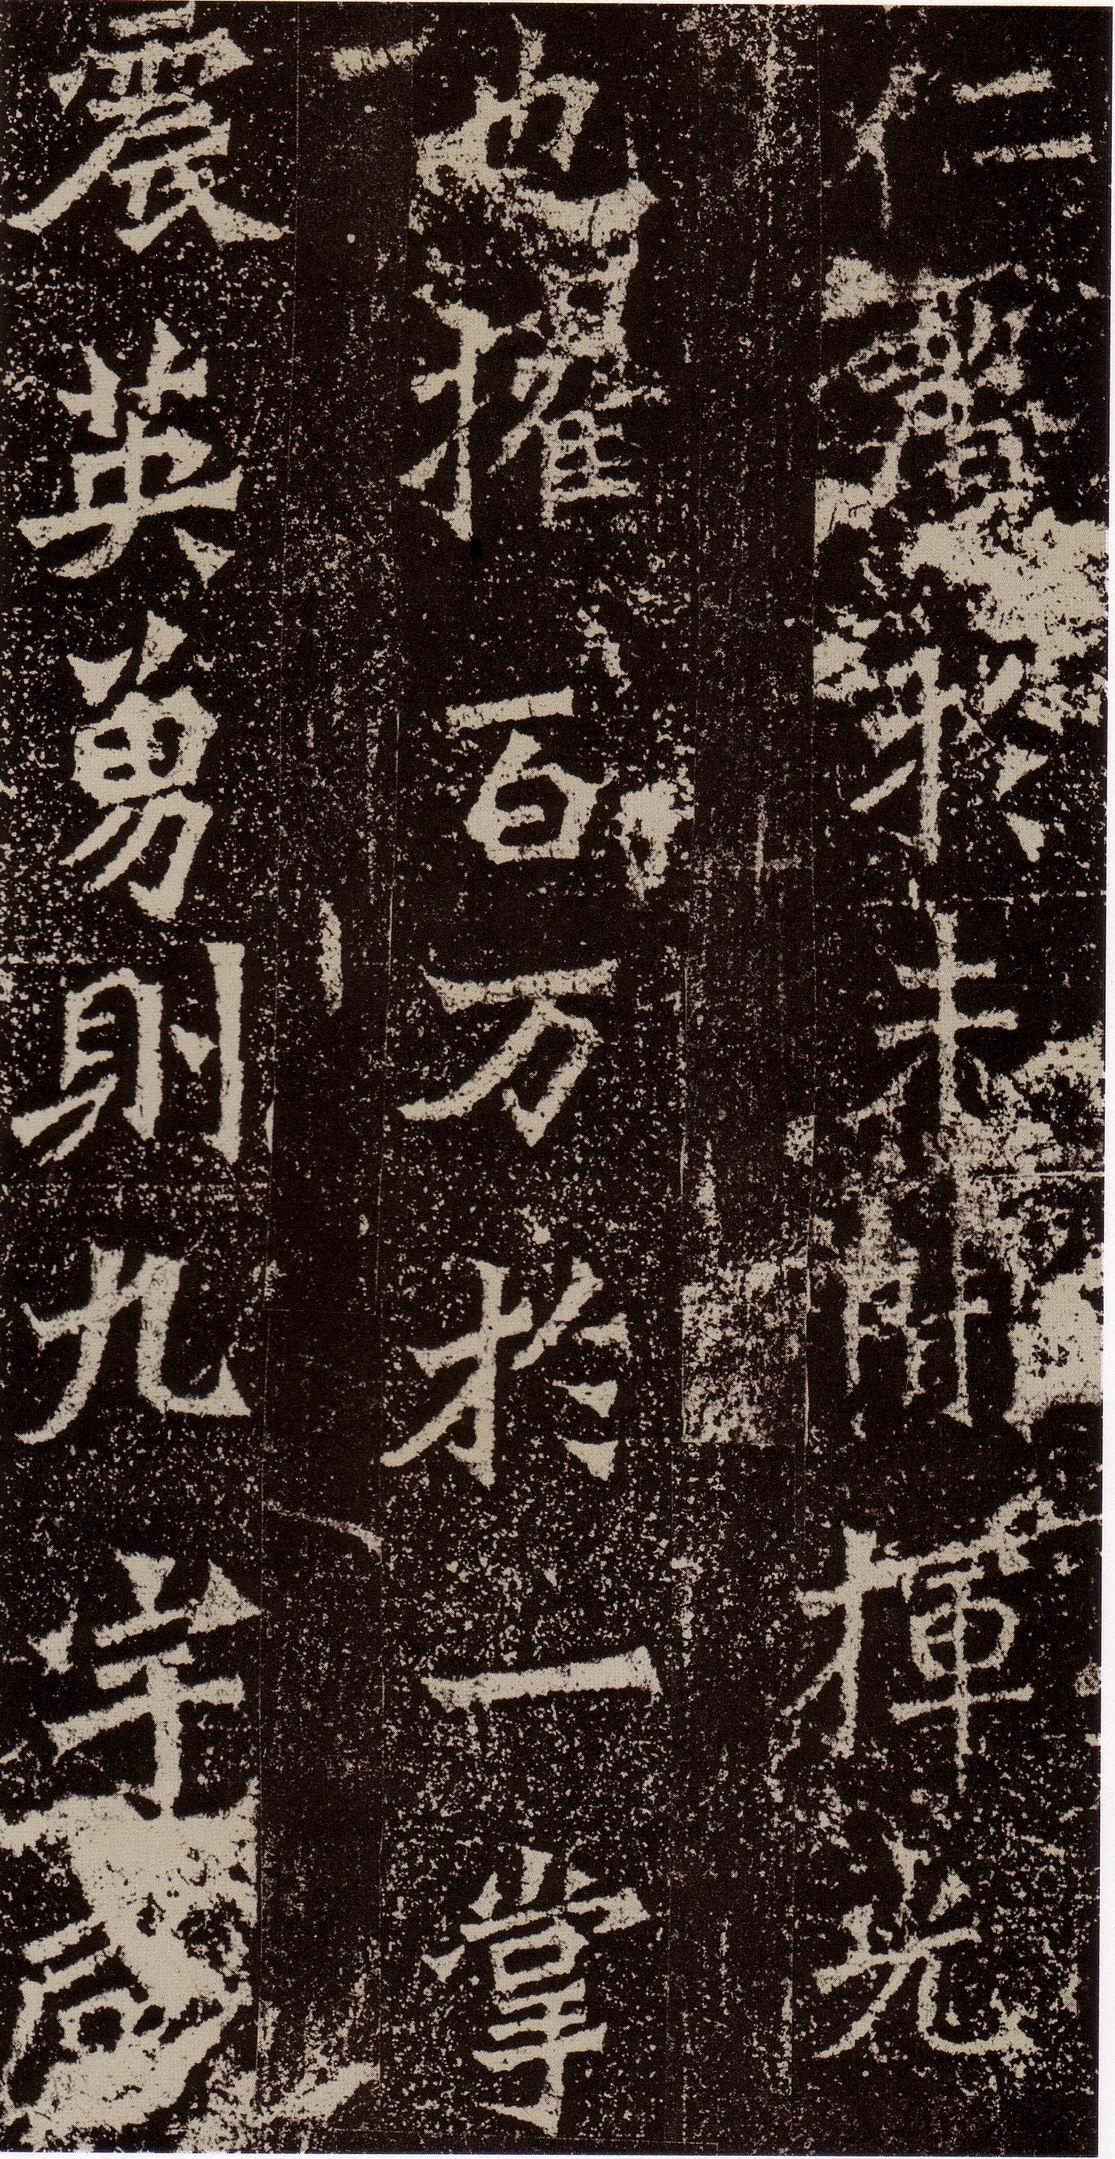 仁聲於未聞揮光
也摧百万於一掌
震英勇則九宇咸